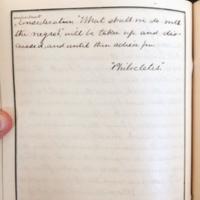 important
Consideration "What shall we do with
the negro", will be taken up and dis-
cussed, and until then adieu for
"Philoctetes."